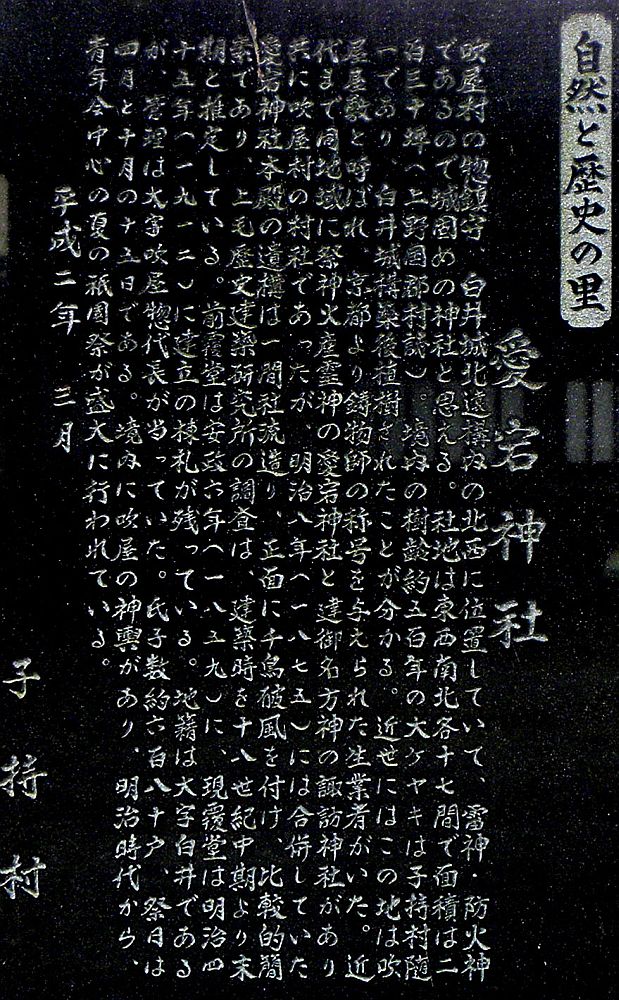 自然と歴史の里
愛宕神社
吹屋村の惣鎮守、白井城北遠構内の北西に位置していて、雷神・防火神
であるので城固めの神社と思える。社地は東西南北各十七間で面積は二
百三十坪(上野国郡村誌)。境内の樹齢約五百年の大ケヤキは子持村随
一であり、白井城構築後植樹されたことが分かる。近世にはこの地は吹
屋屋敷と呼ばれ、京都より鋳物師の称号を与えられた生業者がいた。近
代まで同地域に祭神火産霊神の愛宕神社と建御名方神の諏訪神社があり
共に吹屋村の村社であったが、明治八年(一八七五)には合併していた
愛宕神社本殿の遺構は一間社流造り、正面に千鳥破風を付け、比較的簡
素であり、上毛歴史建築研究所の調査は、建築時を十八世紀中期より末
期と推定している。前覆堂は安政六年(一八五九)に、現覆堂は明治四
十五年(一九一二)に建立の棟札が残っている。地籍は大字白井である
が、管理は大字吹屋惣代長が当っていた。氏子数約六百八十戸、祭日は
四月と十月の十五日である。境内に吹屋の神輿があり、明治時代から、
青年会中心の夏の祇園祭が盛大に行われている。
平成二年 三月
子持村